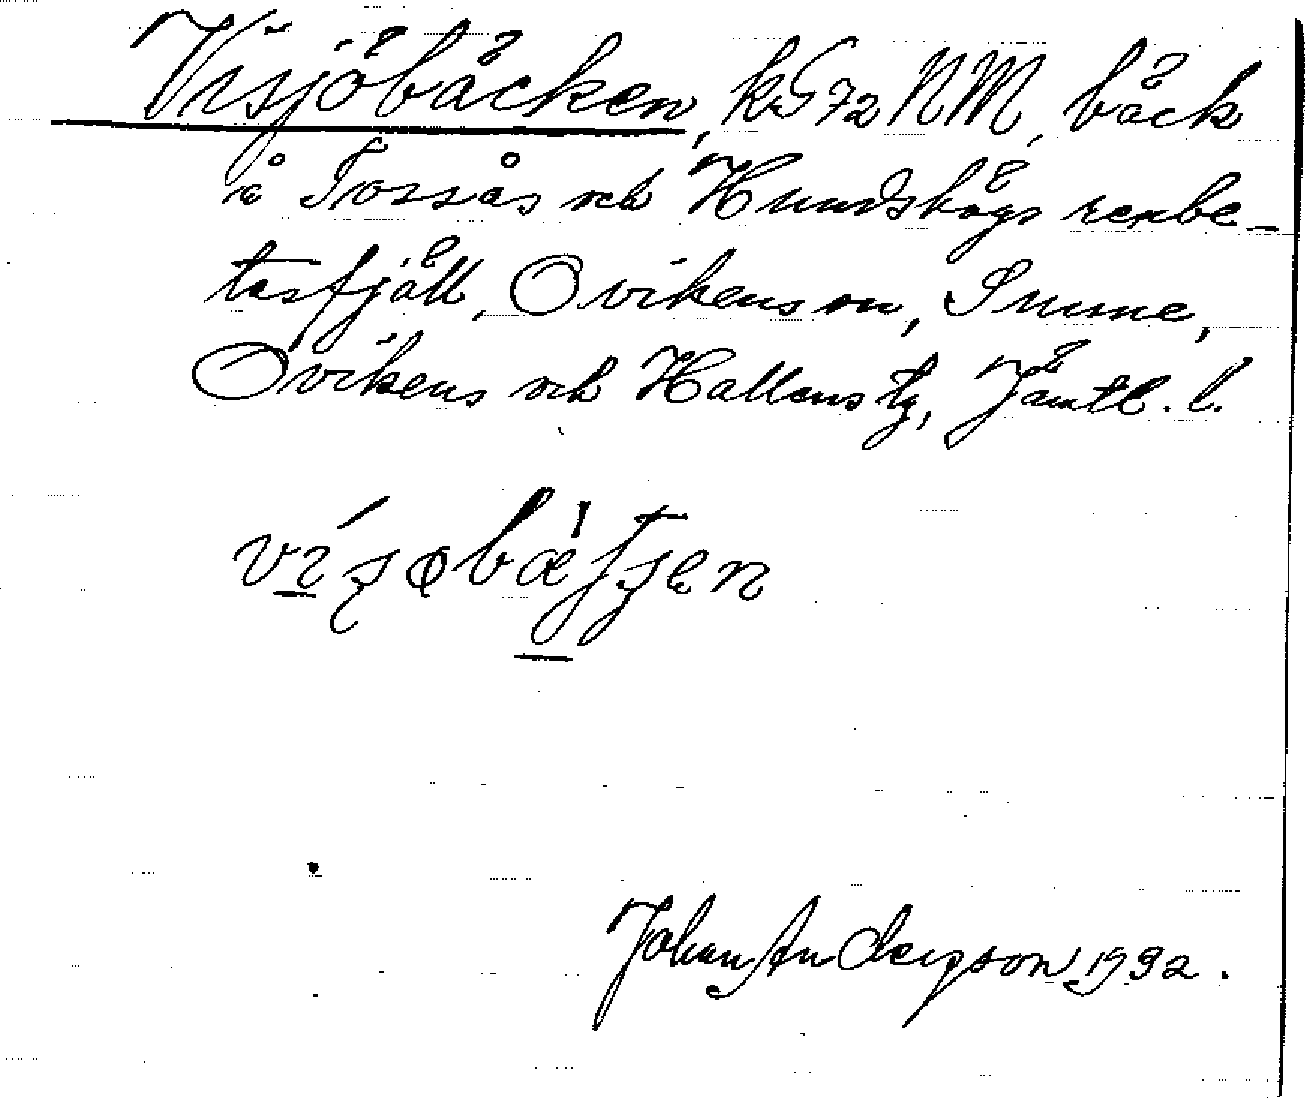 Visjöbäcken, kG 72 NM, bäck
å Tossås och Hundshögs renbe-
tesfjäll, Ovikens sn, Sunne,
Ovikens och Hallens tg, Jämtl. l.
Johan Anderson 1932.